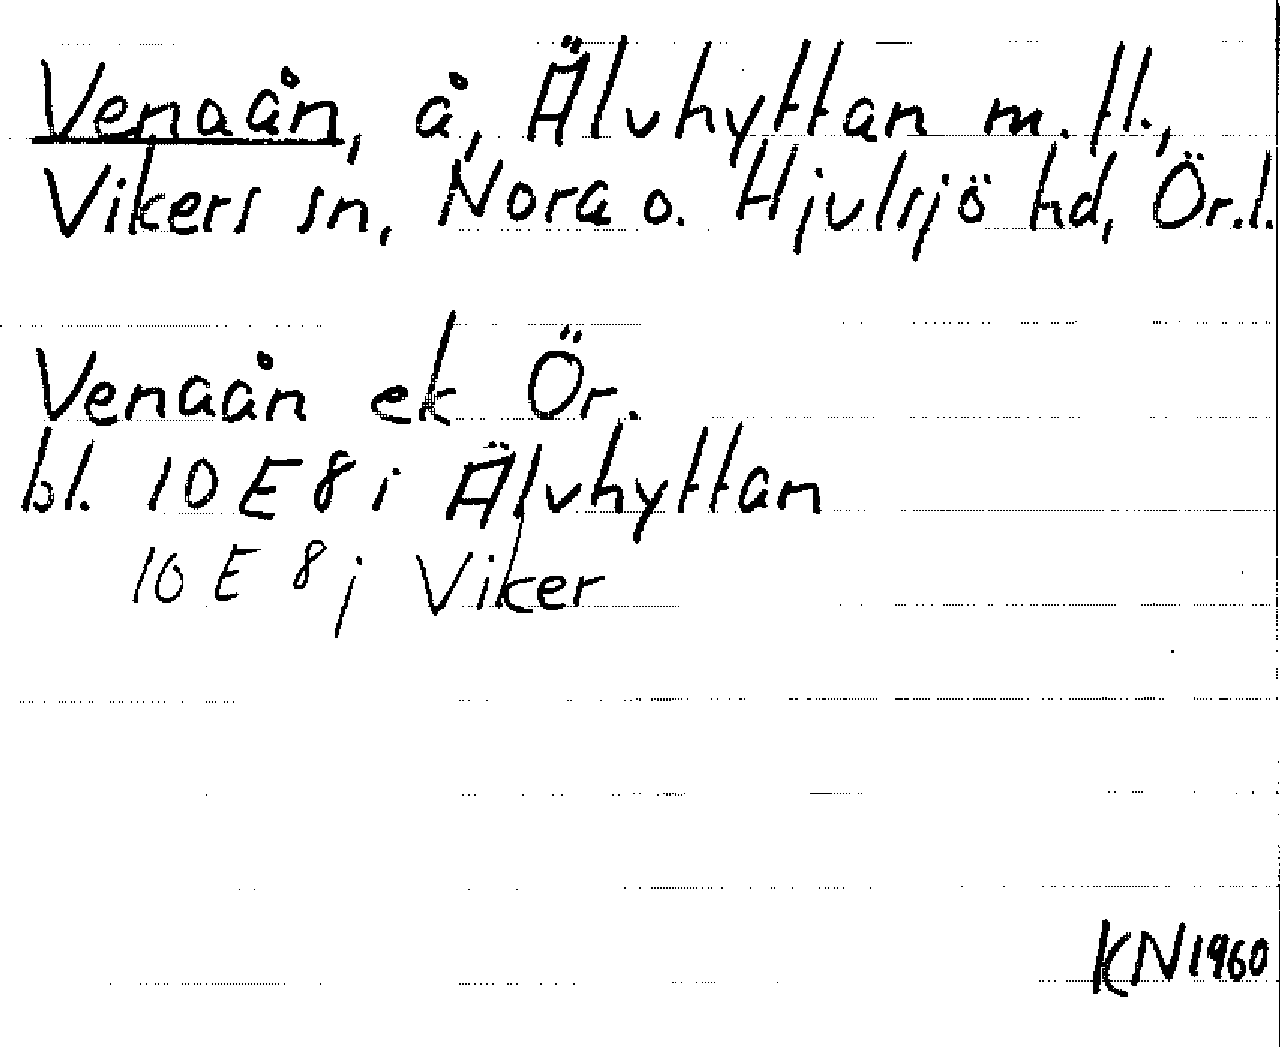 Venaån, å, Älvhyttan m. fl.,
Vikers sn, Nora o. Hjulsjö hd, Ör.l.
Venaån ek Ör.
bl. 10 E 8 i Älvhyttan
10 E 8 j Viker
KN 1960